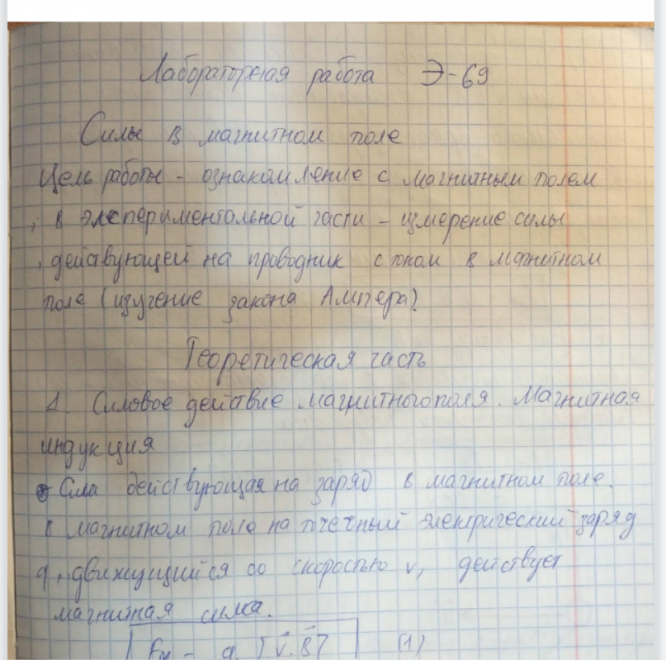 Лабораторная работа Э-69
Силы в магнитном поле
Цель работы - ознакомление с магнитным полем
, в экспериментальной части - измерение силы
, действующей на проводник с током в магнитном
поле (изучение закона Ампера).
Теоретическая часть
1. Силовое действие магнитного поля. Магнитная
индукция
Сила действующая на заряд в магнитном поле.
В магнитном поле на точечный электрический заряд
q, движущийся со скоростью v, действует
магнитная сила.
Fм = q [v̄.B̄] (1)